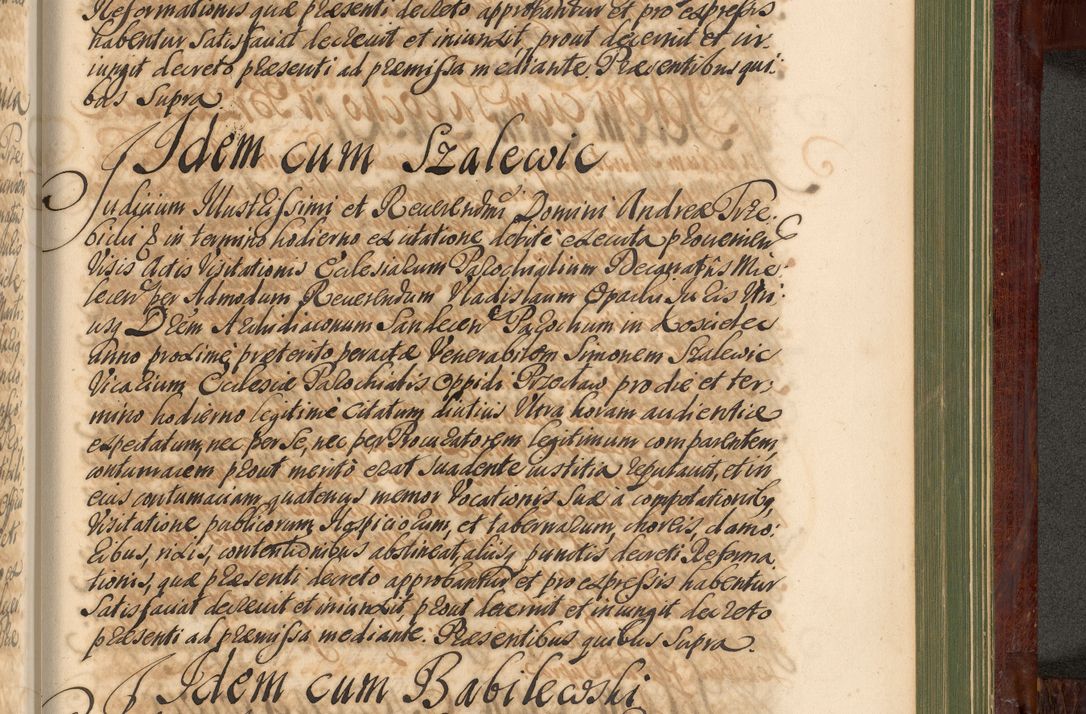 Reformationis quæ præsenti decreto approbantur et pro expressis
habentur satisfaciat decreuit et iniunxit, prout decernit et in-
iungit decreto præsenti ad præmissa mediante. Præsentibus qui-
bus supra.
Idem cum Szalewic
Judicium Illustrissimi et Reuerendmi Domini Andreæ Trze-
bicki in termino hodierno ex citatione debite executa proueniente
Visis Actis Visitationis Ecclesiarum Parochialium Decanatûs Mie-
lecen per Admodum Reuerendum Vladislaum Opacki Juris Vtri-
usq Drem Archidiaconum Sandecen Parochum in Kosielec
anno proxime præterito peractæ Venerabilem Simonem Szalewic
Vicarium Ecclesiæ Parochialis Oppidi Przecław pro die et ter-
mino hodierno legitime citatum diutius Vltra horam audientiæ
expectatum, nec per se, nec per Procuratorem legitimum comparentem,
contumacem prout merito erat suadente iustitia reputauit, et in
eius contumaciam quatenus memor Vocationis suæ a compotationib9
Visitatione publicorum Hospitiorum, et tabernarum, choreis, clamo-
ribus, rixis, contentionibus abstineat, aliisq punctis decreti Reforma
tionis, quæ præsenti decreto approbantur et pro expressis habentur
satisfaciat decreuit et iniunxit, prout decernit et iniungit decreto
præsenti ad præmissa mediante. Præsentibus quibus supra.
Idem cum Babilewski